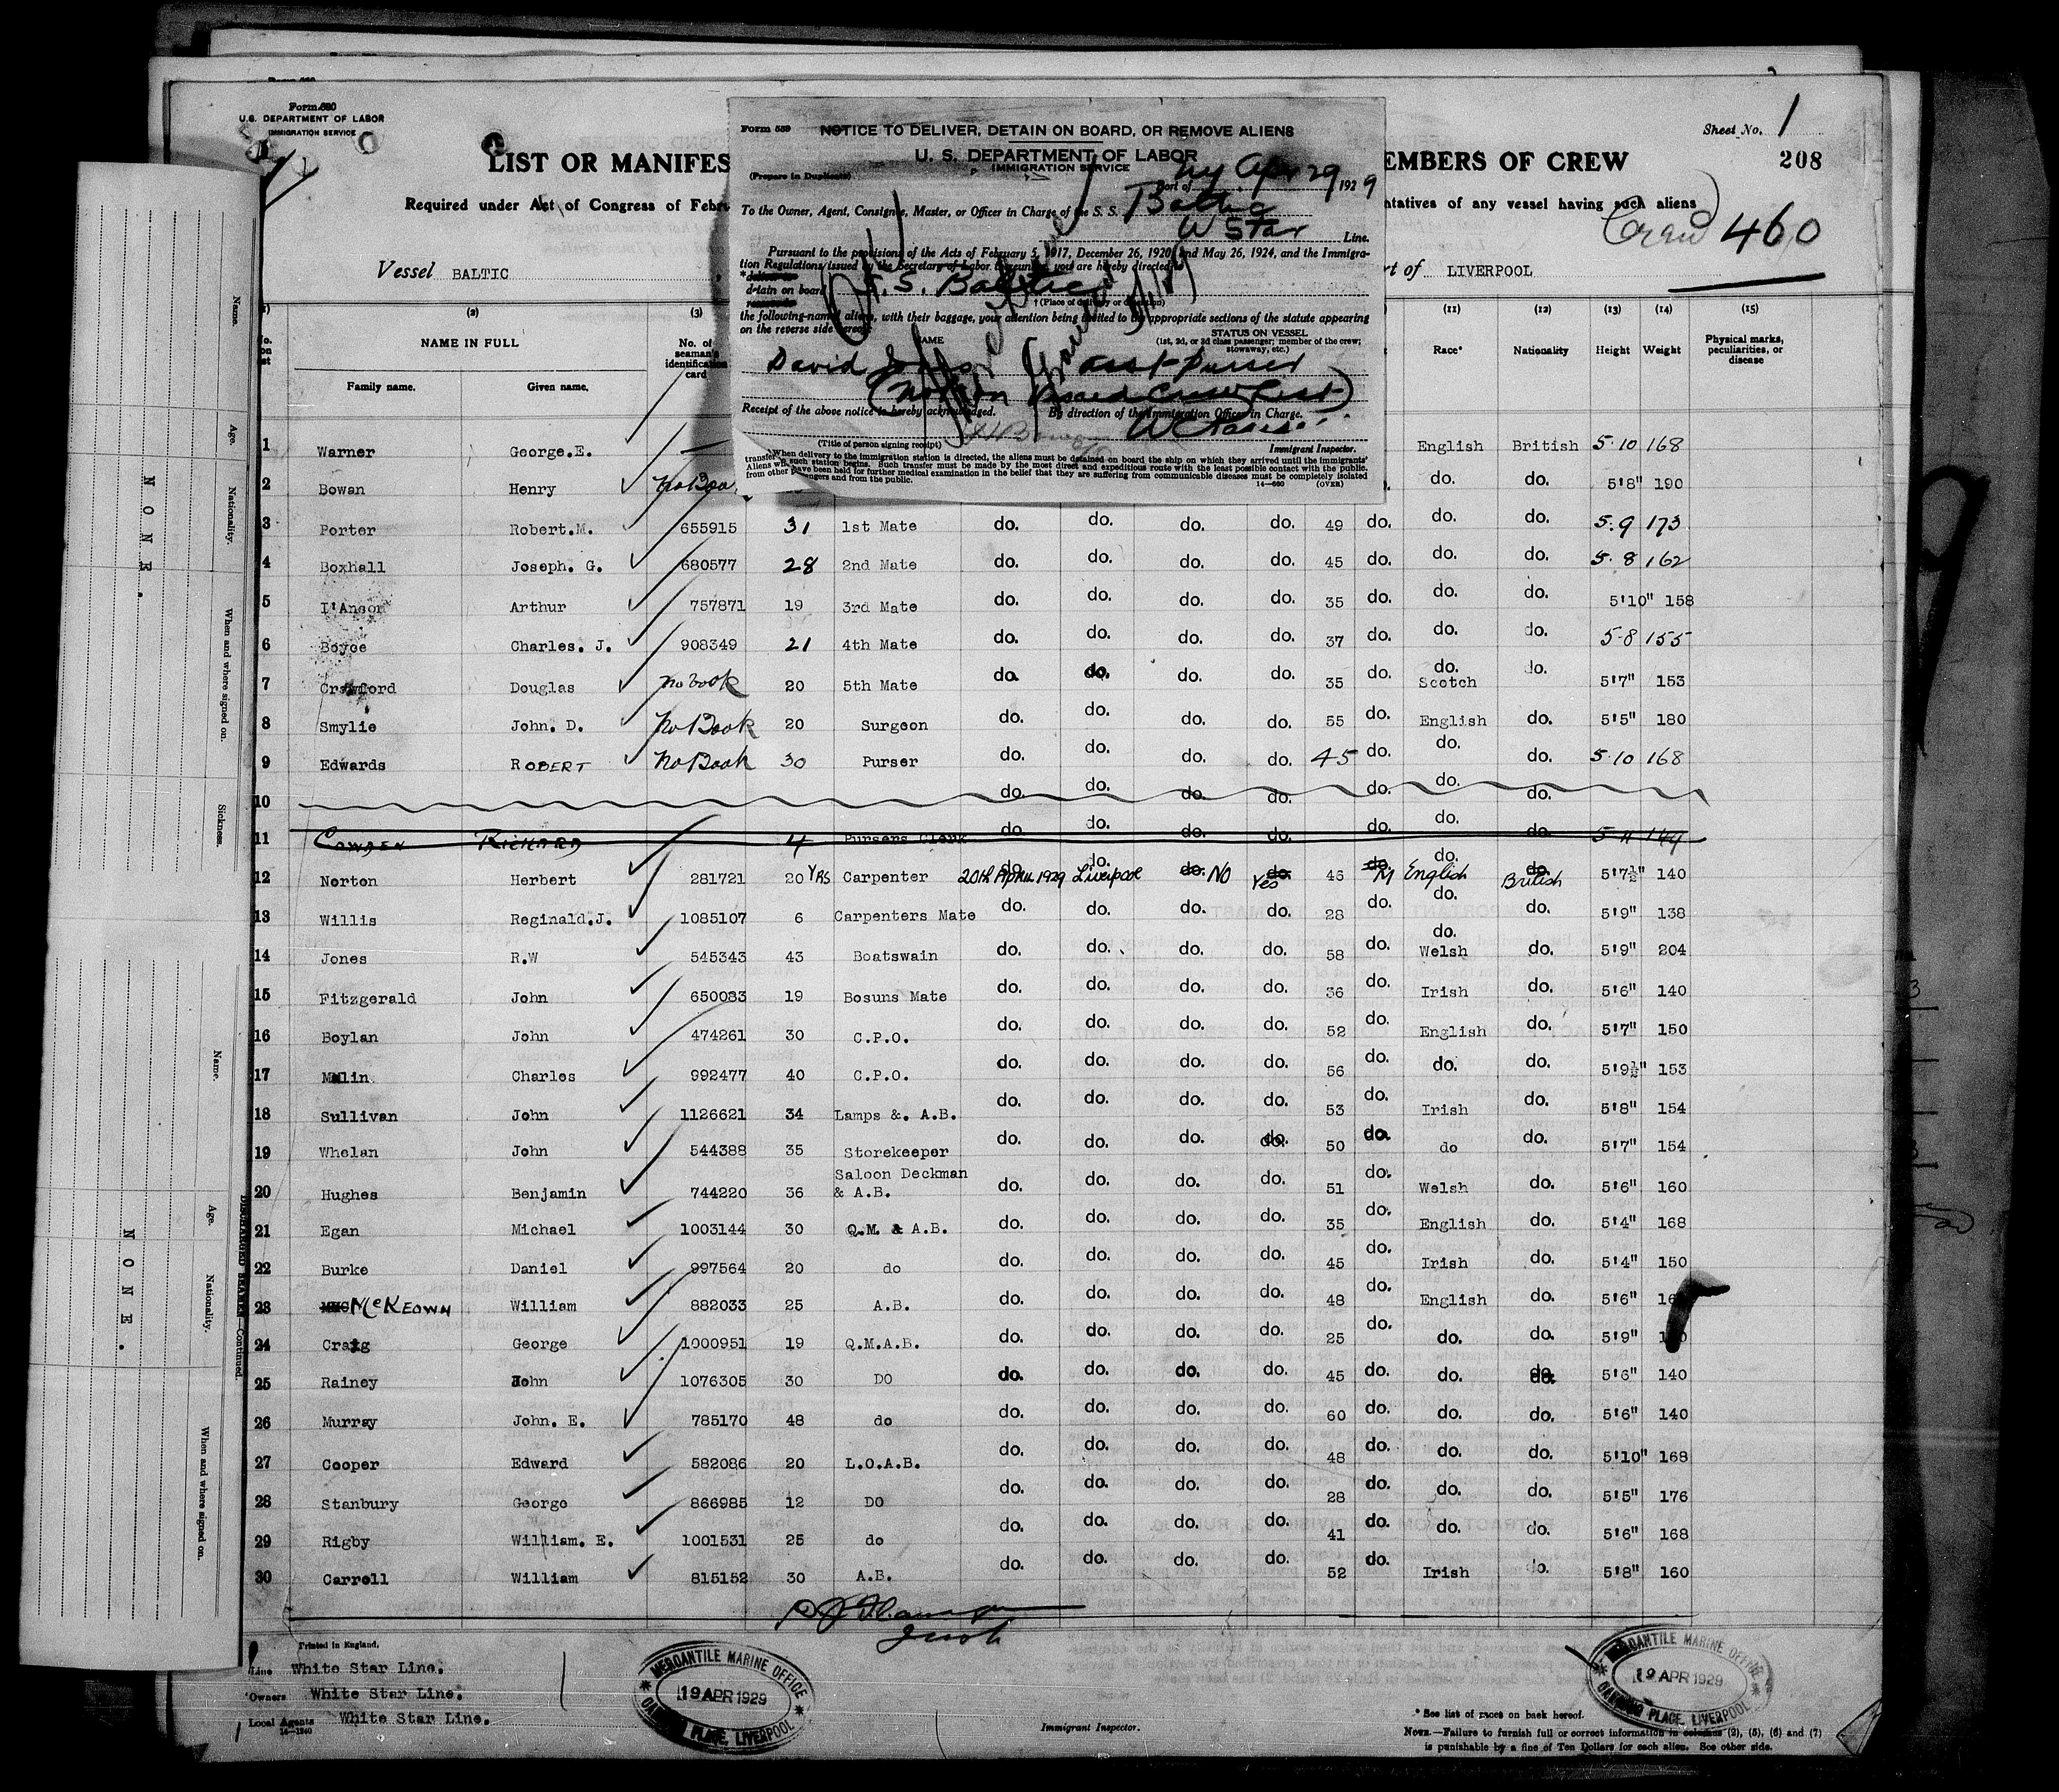 Form 680
U.S. DEPARTMENT OF LABOR
IMMIGRATION SERVICE
Sheet No. 1
208
LIST OR MANIFES
EMBERS OF CREW
Required under Act of Congress of Febru
ntatives of any vessel having such aliens
Crew 460
Vessel BALTIC
rt of LIVERPOOL
Form 539
NOTICE TO DELIVER, DETAIN ON BOARD, OR REMOVE ALIENS
U. S. DEPARTMENT OF LABOR
IMMIGRATION SERVICE
(Prepare in Duplicate)
Port of NY Apr 29 1929
To the Owner, Agent, Consignee, Master, or Officer in Charge of the S. S. Baltic
W Star Line.
Pursuant to the provisions of the Acts of February 5, 1917, December 26, 1920, and May 26, 1924, and the Immigra-
tion Regulations issued by the Secretary of Labor thereunder, you are hereby directed
detain on board S. S. Baltic
† (Place of delivery or detention)
the following-named aliens, with their baggage, your attention being invited to the appropriate sections of the statute appearing
on the reverse side hereof
NAME
STATUS ON VESSEL
(1st, 2d, or 3d class passenger; member of the crew;
stowaway, etc.)
David Jones asst-purser
(Not on Visaed Crew List)
Receipt of the above notice is hereby acknowledged. By direction of the Immigration Officer in Charge.
(Title of person signing receipt) Immigrant Inspector.
When delivery to the immigration station is directed, the aliens must be detained on board the ship on which they arrived until the immigrants'
transfer
such station begins. Such transfer must be made by the most direct and expeditious route with the least possible contact with the public.
Aliens
have been held for further medical examination in the belief that they are suffering from communicable diseases must be completely isolated
from other
ngers and from the public.
14—680 (OVER)
(2) (3) (11) (12) (13) (14) (15)
NAME IN FULL
No. of seaman's identification card
Race* Nationality Height Weight Physical marks, peculiarities, or disease
Family name. Given name.
1 Warner George.E. — English British 5·10 168
2 Bowan Henry No Boo do. do. 5'8" 190
3 Porter Robert.M. 655915 31 1st Mate do. do. do. do. 49 do. do. do. 5·9 173
4 Boxhall Joseph. G. 680577 28 2nd Mate do. do. do. do. 45 do. do. do. 5·8 162
5 I'Anson Arthur 757871 19 3rd Mate do. do. do. do. 35 do. do. do. 5'10" 158
6 Boyce Charles. J. 908349 21 4th Mate do. do. do. do. 37 do. do. do. 5-8 155
7 Crawford Douglas no book 20 5th Mate do. do. do. do. 35 do. do. Scotch do. 5'7" 153
8 Smylie John. D. No Book 20 Surgeon do. do. do. do. 55 do. English do. 5'5" 180
9 Edwards ROBERT No Book 30 Purser do. do. do. do. 45 do. do. do. 5·10 168
10 do. do. do. do. do. do. do.
11 COWDEN RICHARD 4 Pursers Clerk do. do. do. do. do. do. do. 5-11 149
12 Norton Herbert 281721 20 YRS Carpenter do. 20th APRIL 1929 do. Liverpool do. NO do. Yes 46 do. M do. English do. British 5'7½" 140
13 Willis Reginald.J. 1085107 6 Carpenters Mate do. do. do. do. 28 do. do. do. 5'9" 138
14 Jones R.W 545343 43 Boatswain do. do. do. do. 58 do. do. Welsh do. 5'9" 204
15 Fitzgerald John 650083 19 Bosuns Mate do. do. do. do. 36 do. Irish do. 5'6" 140
16 Boylan John 474261 30 C.P.O. do. do. do. do. 52 do. English do. 5'7" 150
17 Malin Charles 992477 40 C.P.O. do. do. do. do. 56 do. do. do. 5'9½" 153
18 Sullivan John 1126621 34 Lamps &. A.B. do. do. do. do. 53 do. Irish do. 5'8" 154
19 Whelan John 544388 35 Storekeeper do. do. do. do. 50 do. do do. 5'7" 154
20 Hughes Benjamin 744220 36 Saloon Deckman & A.B. do. do. do. do. 51 do. Welsh do. 5'6" 160
21 Egan Michael 1003144 30 Q.M. & A.B. do. do. do. do. 35 do. English do. 5'4" 168
22 Burke Daniel 997564 20 do do. do. do. do. 45 do. Irish do. 5'4" 150
23 McKEOWN William 882033 25 A.B. do. do. do. do. 48 do. English do. 5'6"
24 Craig George 1000951 19 Q.M.A.B. do. do. do. do. 25 do. do. do. 5'9"
25 Rainey John 1076305 30 DO do. do. do. do. 45 do. do. do. 5'6" 140
26 Murray John. E. 785170 48 do do. do. do. do. 60 do. do. do. 5'6" 140
27 Cooper Edward 582086 20 L.O.A.B. do. do. do. do. 48 do. do. do. 5'10" 168
28 Stanbury George 866985 12 DO do. do. do. do. 28 do. do. do. 5'5" 176
29 Rigby William. E. 1001531 25 do do. do. do. do. 41 do. do. do. 5'6" 168
30 Carroll William 815152 30 A.B. do. do. do. do. 52 do. Irish do. 5'8" 160
Printed in England.
Line White Star Line.
Owners White Star Line.
Local Agents White Star Line.
14—1240
MERCANTILE MARINE OFFICE
19 APR 1929
CANNING PLACE, LIVERPOOL
Immigrant Inspector.
MERCANTILE MARINE OFFICE
19 APR 1929
CANNING PLACE, LIVERPOOL
* See list of races on back hereof.
NOTE.—Failure to furnish full or correct information in columns (2), (5), (6) and (7)
is punishable by a fine of Ten Dollars for each alien. See other side.
Name.
Age.
Nationality.
When and where signed on.
Sickness.
NONE.
DISCHARGED SEAMEN—Continued.
Name.
Age.
Nationality.
When and where signed on.
NONE.